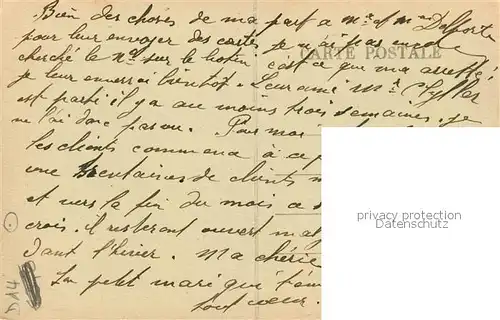 Bien des choses de ma part a Mr et Mme Delporte
pour leur envoyer des cartes, je n'ai pas
CARTE POSTALE
cherché le No sur le botin c'est ce que m'a arretté
je leur enverrai bientot. Leur ami Mr
est parti il y a au moins trois semaines. je
ne l'ai donc pas vu. Pour moi
les clients commence à ce
une trentaines de clients
et vers la fin du mois a
crois. il resteront ouvert
dant l'hiver. Ma chérie
Ton petit mari qui t'aime
tout cœur.
privacy protection
Datenschutz
D14